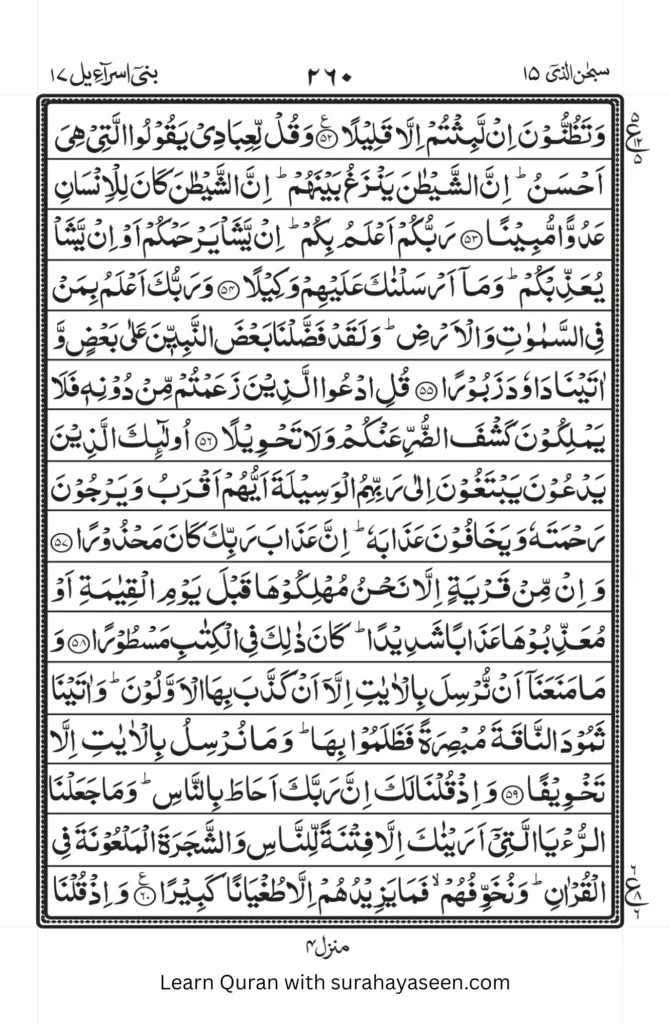 سبحٰن الذیٓ ١٥ ٢٦٠ بنیٓ اسرآءیل ١٧
وَتَظُنُّوۡنَ اِنۡ لَّبِثۡتُمۡ اِلَّا قَلِيۡلًا ﴿٥٢﴾ ع وَقُلۡ لِّعِبَادِىۡ يَقُوۡلُوا الَّتِىۡ هِىَ
ع ٥ ١٢ ٥
اَحۡسَنُ ؕ اِنَّ الشَّيۡطٰنَ يَنۡزَغُ بَيۡنَهُمۡ ؕ اِنَّ الشَّيۡطٰنَ كَانَ لِلۡاِنۡسَانِ
عَدُوًّا مُّبِيۡنًا ﴿٥٣﴾ رَبُّكُمۡ اَعۡلَمُ بِكُمۡ ؕ اِنۡ يَّشَاۡ يَرۡحَمۡكُمۡ اَوۡ اِنۡ يَّشَاۡ
يُعَذِّبۡكُمۡ ؕ وَمَاۤ اَرۡسَلۡنٰكَ عَلَيۡهِمۡ وَكِيۡلًا ﴿٥٤﴾ وَرَبُّكَ اَعۡلَمُ بِمَنۡ
فِى السَّمٰوٰتِ وَالۡاَرۡضِ ؕ وَلَقَدۡ فَضَّلۡنَا بَعۡضَ النَّبِيّٖنَ عَلٰى بَعۡضٍ وَّ
اٰتَيۡنَا دَاوٗدَ زَبُوۡرًا ﴿٥٥﴾ قُلِ ادۡعُوا الَّذِيۡنَ زَعَمۡتُمۡ مِّنۡ دُوۡنِهٖ فَلَا
يَمۡلِكُوۡنَ كَشۡفَ الضُّرِّ عَنۡكُمۡ وَلَا تَحۡوِيۡلًا ﴿٥٦﴾ اُولٰٓئِكَ الَّذِيۡنَ
يَدۡعُوۡنَ يَبۡتَغُوۡنَ اِلٰى رَبِّهِمُ الۡوَسِيۡلَةَ اَيُّهُمۡ اَقۡرَبُ وَيَرۡجُوۡنَ
رَحۡمَتَهٗ وَيَخَافُوۡنَ عَذَابَهٗ ؕ اِنَّ عَذَابَ رَبِّكَ كَانَ مَحۡذُوۡرًا ﴿٥٧﴾
وَاِنۡ مِّنۡ قَرۡيَةٍ اِلَّا نَحۡنُ مُهۡلِكُوۡهَا قَبۡلَ يَوۡمِ الۡقِيٰمَةِ اَوۡ
مُعَذِّبُوۡهَا عَذَابًا شَدِيۡدًا ؕ كَانَ ذٰلِكَ فِى الۡكِتٰبِ مَسۡطُوۡرًا ﴿٥٨﴾ وَ
مَا مَنَعَنَاۤ اَنۡ نُّرۡسِلَ بِالۡاٰيٰتِ اِلَّاۤ اَنۡ كَذَّبَ بِهَا الۡاَوَّلُوۡنَ ؕ وَاٰتَيۡنَا
ثَمُوۡدَ النَّاقَةَ مُبۡصِرَةً فَظَلَمُوۡا بِهَا ؕ وَمَا نُرۡسِلُ بِالۡاٰيٰتِ اِلَّا
تَخۡوِيۡفًا ﴿٥٩﴾ وَاِذۡ قُلۡنَا لَكَ اِنَّ رَبَّكَ اَحَاطَ بِالنَّاسِ ؕ وَمَا جَعَلۡنَا
الرُّءۡيَا الَّتِىۡۤ اَرَيۡنٰكَ اِلَّا فِتۡنَةً لِّلنَّاسِ وَالشَّجَرَةَ الۡمَلۡعُوۡنَةَ فِى
الۡقُرۡاٰنِ ؕ وَنُخَوِّفُهُمۡ ۙ فَمَا يَزِيۡدُهُمۡ اِلَّا طُغۡيَانًا كَبِيۡرًا ﴿٦٠﴾ ع وَاِذۡ قُلۡنَا
ع ٦ ٨ ٦
منزل ٤
Learn Quran with surahayaseen.com